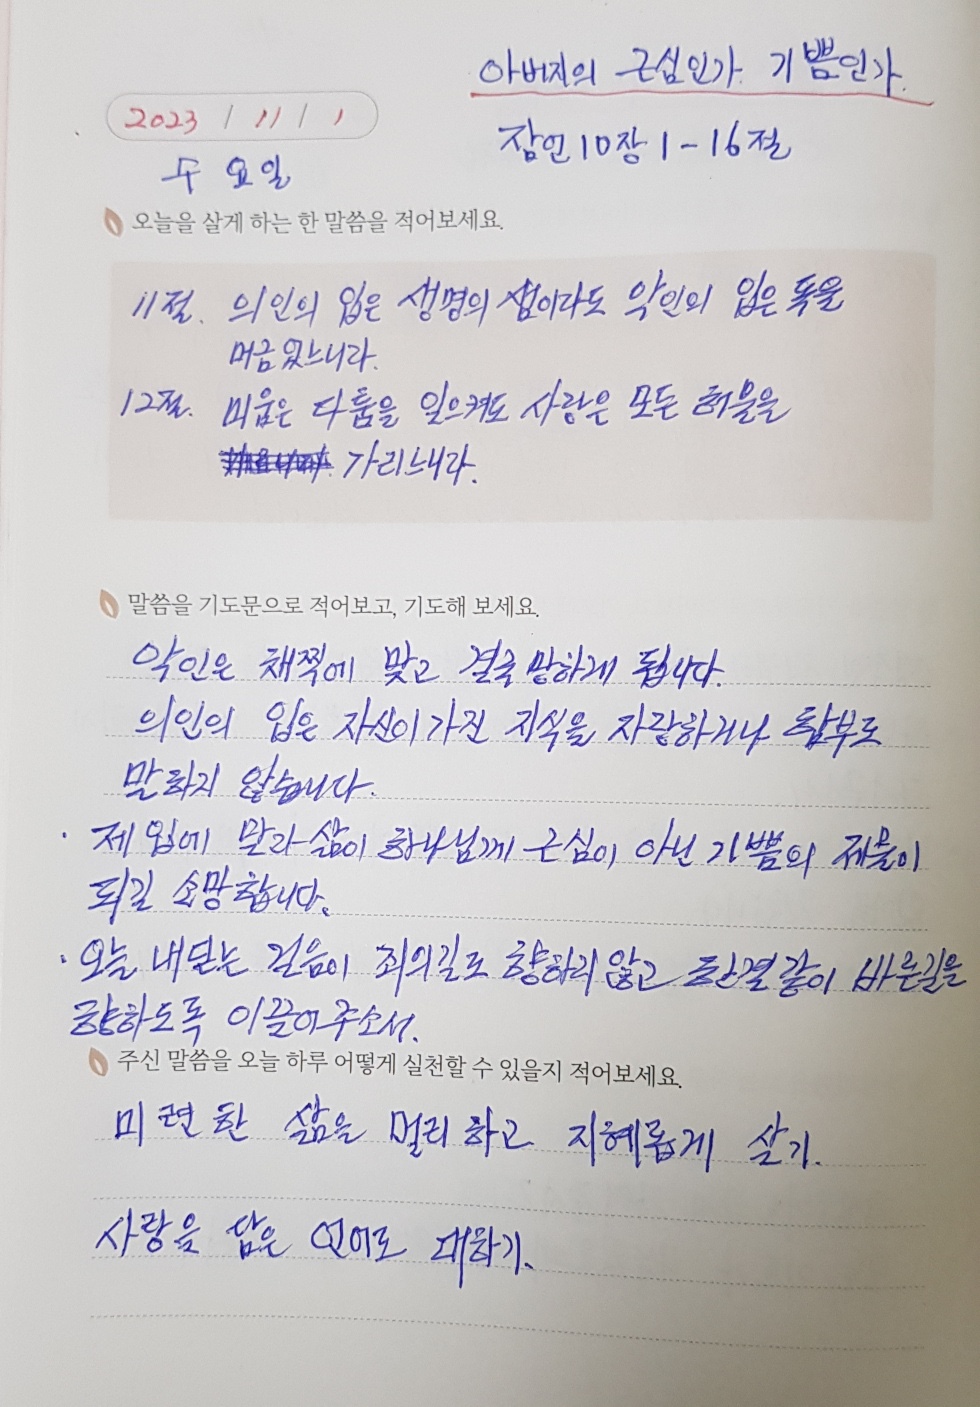 아버지의 근심인가 기쁨인가.
2023 / 11 / 1
잠언 10장 1-16절
수요일
오늘을 살게 하는 한 말씀을 적어보세요.
11절. 의인의 입은 생명의 샘이라도 악인의 입은 독을
머금었느니라.
12절. 미움은 다툼을 일으켜도 사랑은 모든 허물을
가리느니라.
말씀을 기도문으로 적어보고, 기도해 보세요.
악인은 채찍에 맞고 결국 망하게 됩니다.
의인의 입은 자신이 가진 지식을 자랑하거나 함부로
말하지 않습니다.
· 제 입에 말과 삶이 하나님께 근심이 아닌 기쁨의 제물이
되길 소망합니다.
· 오늘 내딛는 걸음이 죄의길로 향하지 않고 한결같이 바른길을
향하도록 이끌어주소서.
주신 말씀을 오늘 하루 어떻게 실천할 수 있을지 적어보세요.
미련한 삶을 멀리하고 지혜롭게 살기.
사랑을 담은 언어로 대화하기.